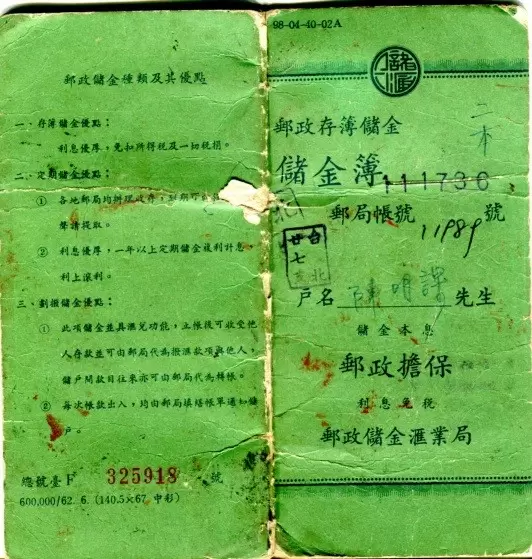 郵政儲金種類及其優點
一、存簿儲金優點：
利息優厚，免扣所得稅及一切稅捐。
二、定期儲金優點：
① 各地郵局均辦理收存，到期可
聲請提取。
② 利息優厚，一年以上定期儲金複利計息，
利上滾利。
三、劃撥儲金優點：
① 此項儲金並具滙兌功能，立帳後可收受他
人存款並可由郵局代為撥滙款項與他人，
儲戶間款目往來亦可由郵局代為轉帳。
② 每次帳款出入，均由郵局填繕帳單通知儲
戶。
總號臺F 325918 號
600,000/62. 6. (140.5×67. 中彩)
98-04-40-02A
儲滙
二本
郵政存簿儲金
儲金簿
111736
郵局帳號 11989 號
台北
廿七
戶名 陳明 先生
儲金本息
郵政擔保
利息免稅
郵政儲金滙業局